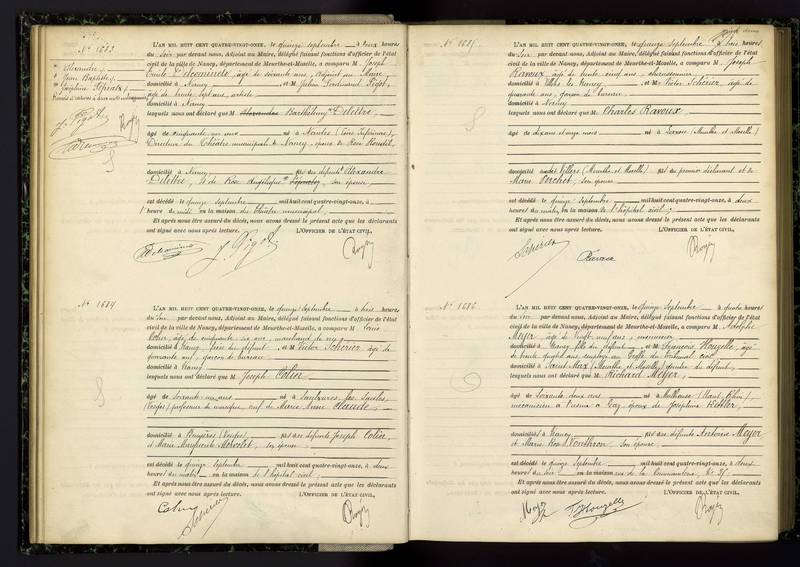 N° 1683
Alexandre
Jean Baptiste
L'AN MIL HUIT CENT QUATRE-VINGT-ONZE, le quinze septembre à deux heures
du soir par devant nous, Adjoint au Maire, délégué faisant fonctions d'officier de l'état
civil de la ville de Nancy, département de Meurthe-et-Moselle, a comparu M Joseph
Emile âgé de soixante ans, adjoint au Maire
domicilié à Nancy et M Julien Ferdinand Pigot,
âgé de trente ans, artiste
domicilié à Nancy
lesquels nous ont déclaré que M Alexandre Barthélemy Delettre,
âgé de cinquante un ans né à Nantes (Loire Inférieure),
Directeur du Théâtre municipal de Nancy, époux de Rose
domicilié à Nancy fils du défunt Alexandre
Delettre, & de Rose Angélique son épouse
est décédé le quinze septembre mil huit cent quatre-vingt-onze, à
heure de midi en la maison du Théâtre municipal,
Et après nous être assuré du décès, nous avons dressé le présent acte que les déclarants
ont signé avec nous après lecture. L'OFFICIER DE L'ÉTAT CIVIL,
J. Pigot
N° 1684
L'AN MIL HUIT CENT QUATRE-VINGT-ONZE, le quinze septembre à trois heures
du soir par devant nous, Adjoint au Maire, délégué faisant fonctions d'officier de l'état
civil de la ville de Nancy, département de Meurthe-et-Moselle, a comparu M Louis
Colin, âgé de cinquante six ans, marchand de vin
domicilié à Nancy, frère du défunt et M Victor Schérier âgé de
quarante ans, garçon de bureau
domicilié à Nancy
lesquels nous ont déclaré que M Joseph Colin
âgé de soixante un ans né à Saulxures les
(Vosges) professeur de musique, veuf de Marie Anne Claude
domicilié à (Vosges) fils des défunts Joseph Colin,
et Marie Marguerite son épouse
est décédé le quinze septembre mil huit cent quatre-vingt-onze, à deux
heures du matin en la maison de l'hôpital civil
Et après nous être assuré du décès, nous avons dressé le présent acte que les déclarants
ont signé avec nous après lecture. L'OFFICIER DE L'ÉTAT CIVIL,
Colin
Schérier
N° 1685
L'AN MIL HUIT CENT QUATRE-VINGT-ONZE, le quinze septembre à trois heures
du soir par devant nous, Adjoint au Maire, délégué faisant fonctions d'officier de l'état
civil de la ville de Nancy, département de Meurthe-et-Moselle, a comparu M Joseph
Ravoux, âgé de trente neuf ans,
domicilié à Villers les Nancy, et M Victor Schérier, âgé de
quarante ans, garçon de bureau
domicilié à Nancy
lesquels nous ont déclaré que M Charles Ravoux
âgé de dix ans onze mois né à (Meurthe et Moselle)
domicilié à Villers (Meurthe et Moselle) fils du premier déclarant et de
Marie son épouse
est décédé le quinze septembre mil huit cent quatre-vingt-onze, à deux
heures du matin, en la maison de l'hôpital civil
Et après nous être assuré du décès, nous avons dressé le présent acte que les déclarants
ont signé avec nous après lecture. L'OFFICIER DE L'ÉTAT CIVIL,
Schérier
Ravoux
N° 1686
L'AN MIL HUIT CENT QUATRE-VINGT-ONZE, le quinze septembre à quatre heures
du soir par devant nous, Adjoint au Maire, délégué faisant fonctions d'officier de l'état
civil de la ville de Nancy, département de Meurthe-et-Moselle, a comparu M Adolphe
Meyer, âgé de vingt neuf ans,
domicilié à Nancy, fils du défunt et M François Houzelle, âgé
de trente quatre ans employé au Greffe du tribunal civil
domicilié à Saint Max (Meurthe et Moselle) gendre du défunt,
lesquels nous ont déclaré que M Richard Meyer,
âgé de soixante deux ans né à Mulhouse (Haut Rhin)
mécanicien à l'usine à Gaz, époux de Joséphine
domicilié à Nancy fils des défunts Antoine Meyer
et Marie Rose son épouse
est décédé le quinze septembre mil huit cent quatre-vingt-onze, à deux
heures du soir en la maison rue de la Commanderie, N° 35
Et après nous être assuré du décès, nous avons dressé le présent acte que les déclarants
ont signé avec nous après lecture. L'OFFICIER DE L'ÉTAT CIVIL,
Meyer
Houzelle